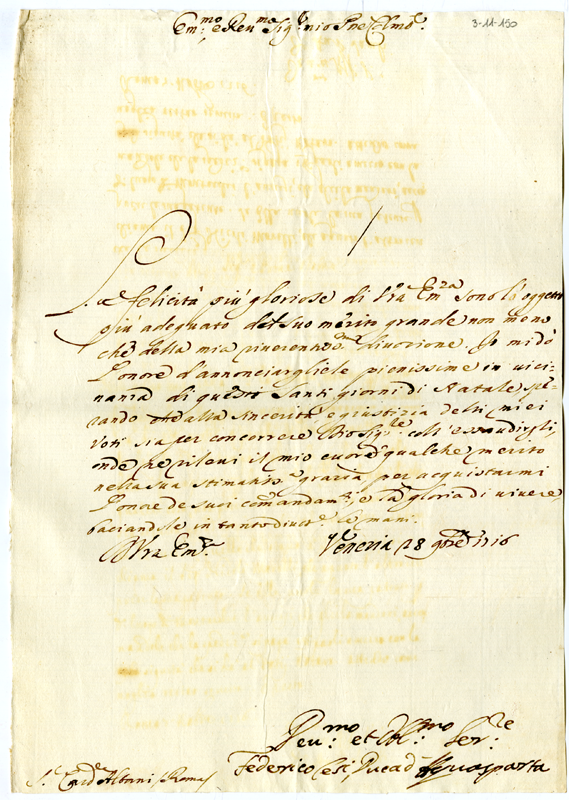 3-11-150
Em:mo e Ren:mo Sig:r mio Pne Col:mo
Le felicità più gloriose di Vra Em:za sono l'oggetto
più adeguato del suo merito grande non meno
che della mia riverent:ma divozione. Io mi dò
l'onore d'annonciargliele pienissime in vici-
nanza di questi Santi giorni di Natale spe-
rando che alla sincerità e giustizia delli miei
voti sia per concorrere Dio Sig:re coll'essaudirgli,
onde ne rilevi il mio cuore qualche merito
nella sua stimatis:a grazia per acquistarmi
l'onore de suoi comandam:ti, e la gloria di vivere
baciandole in tanto divot:e le mani.
D Vra Em:za Venezia 28 9bre 1716
Deu:mo et Obl:mo Ser:re
Federico Cesi, Duca d'Acquasparta
S:r Card:e Albani Roma